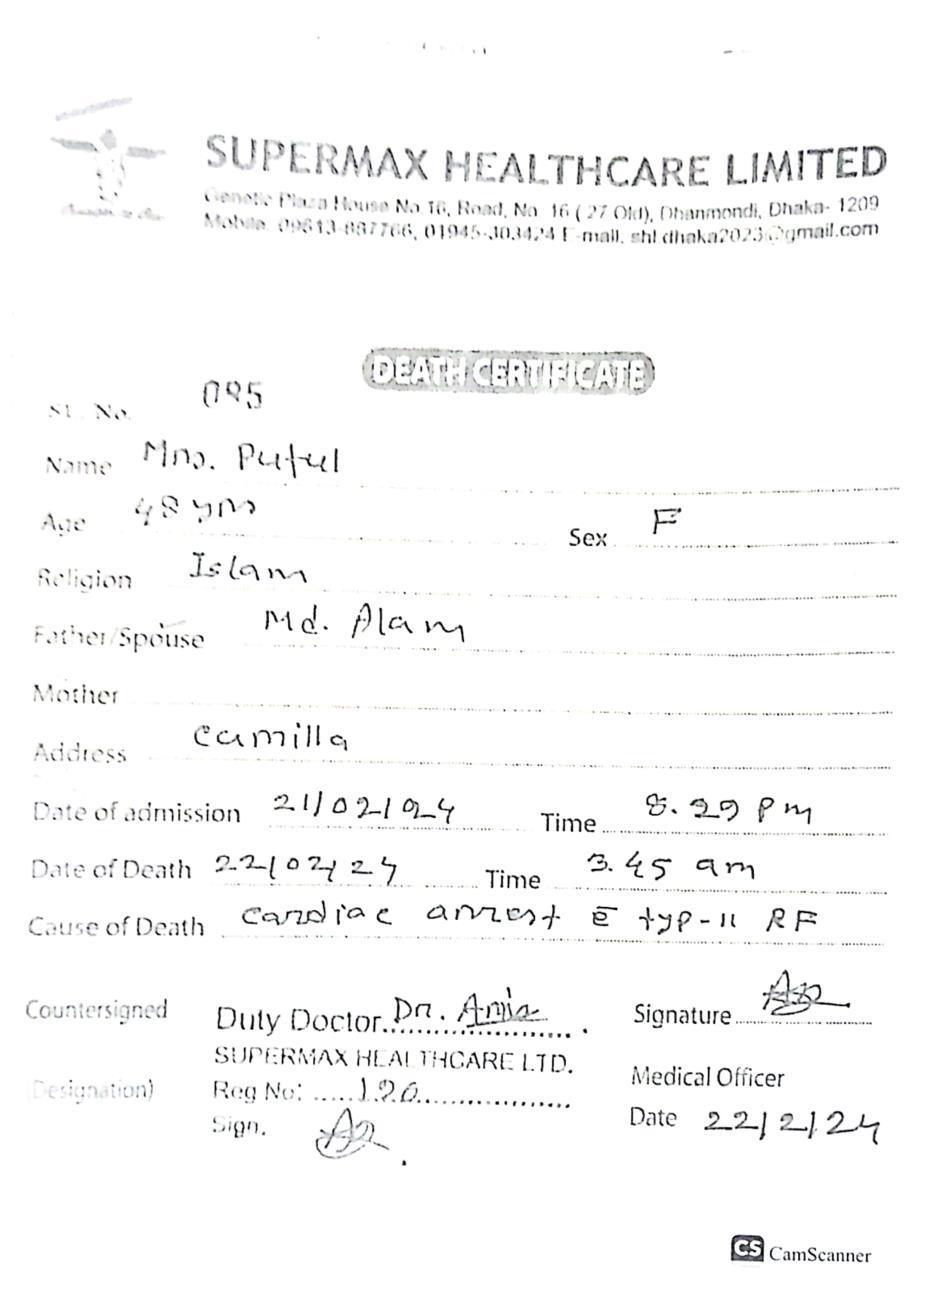 SUPERMAX HEALTHCARE LIMITED
Genetic Plaza House No 16, Road, No 16 ( 27 Old), Dhanmondi, Dhaka- 1209
Mobile. 09613-887766, 01945-303424 E-mail. shl.dhaka2023@gmail.com
DEATH CERTIFICATE
SL. No. 095
Name Mrs. Putul
Age 48 yrs Sex F
Religion Islam
Father/Spouse Md. Alam
Mother
Address Cumilla
Date of admission 21/02/24 Time 8.29 pm
Date of Death 22/02/24 Time 3.45 am
Cause of Death Cardiac arrest c̄ typ-II RF
Countersigned Duty Doctor Dr. Signature
SUPERMAX HEALTHCARE LTD.
(Designation) Reg No: Medical Officer
Sign. Date 22/2/24
CS CamScanner